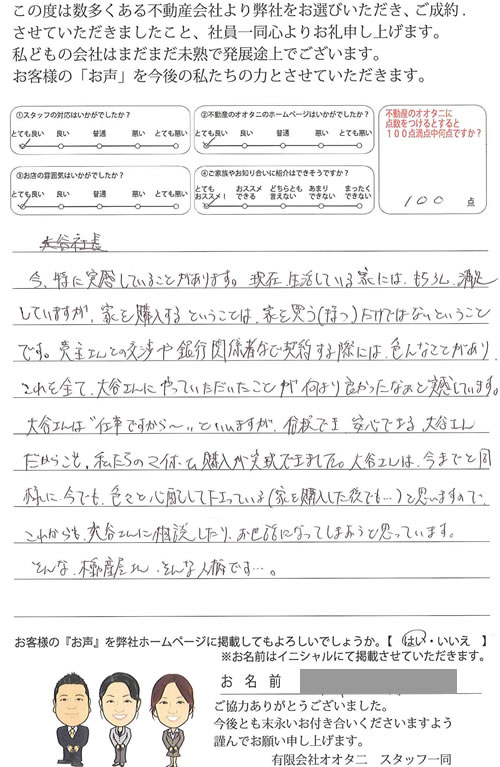 この度は数多くある不動産会社より弊社をお選びいただき、ご成約.
させていただきましたこと、社員一同心よりお礼申し上げます。
私どもの会社はまだまだ未熟で発展途上でございます。
お客様の「お声」を今後の私たちの力とさせていただきます。
①スタッフの対応はいかがでしたか?
とても良い 良い 普通 悪い とても悪い
②不動産のオオタニのホームページはいかがでしたか?
とても良い 良い 普通 悪い とても悪い
③お店の雰囲気はいかがでしたか?
とても良い 良い 普通 悪い とても悪い
④ご家族やお知り合いに紹介はできそうですか?
とてもオススメ! オススメできる どちらとも言えない あまりできない まったくできない
不動産のオオタニに
点数をつけるとすると
100点満点中何点ですか?
100 点
大谷社長
今、特に実感していることがあります。現在、生活している家には、もちろん、満足
していますが、家を購入するということは、家を買う(持つ)だけではないということ
です。売主さんとの交渉や銀行関係者など契約する際には、色んなことがあり、
これを全て、大谷さんにやっていただいたことが何より良かったなぁと実感しています。
大谷さんは"仕事ですから〜"といいますが、信頼でき、安心できる、大谷さん
だからこそ、私たちのマイホーム購入が実現できました。大谷さんは、今までと同
様に今でも、色々と心配して下さっている(家を購入した後でも…)と思いますので、
これからも、大谷さんに相談したり、お世話になってしまおうと思っています。
そんな、不動産屋さん、そんな人柄です…。
お客様の『お声』を弊社ホームページに掲載してもよろしいでしょうか。【 はい・いいえ 】
※お名前はイニシャルにて掲載させていただきます。
お 名 前
ご協力ありがとうございました。
今後とも末永いお付き合いくださいますよう
謹んでお願い申し上げます。
有限会社オオタニ スタッフ一同